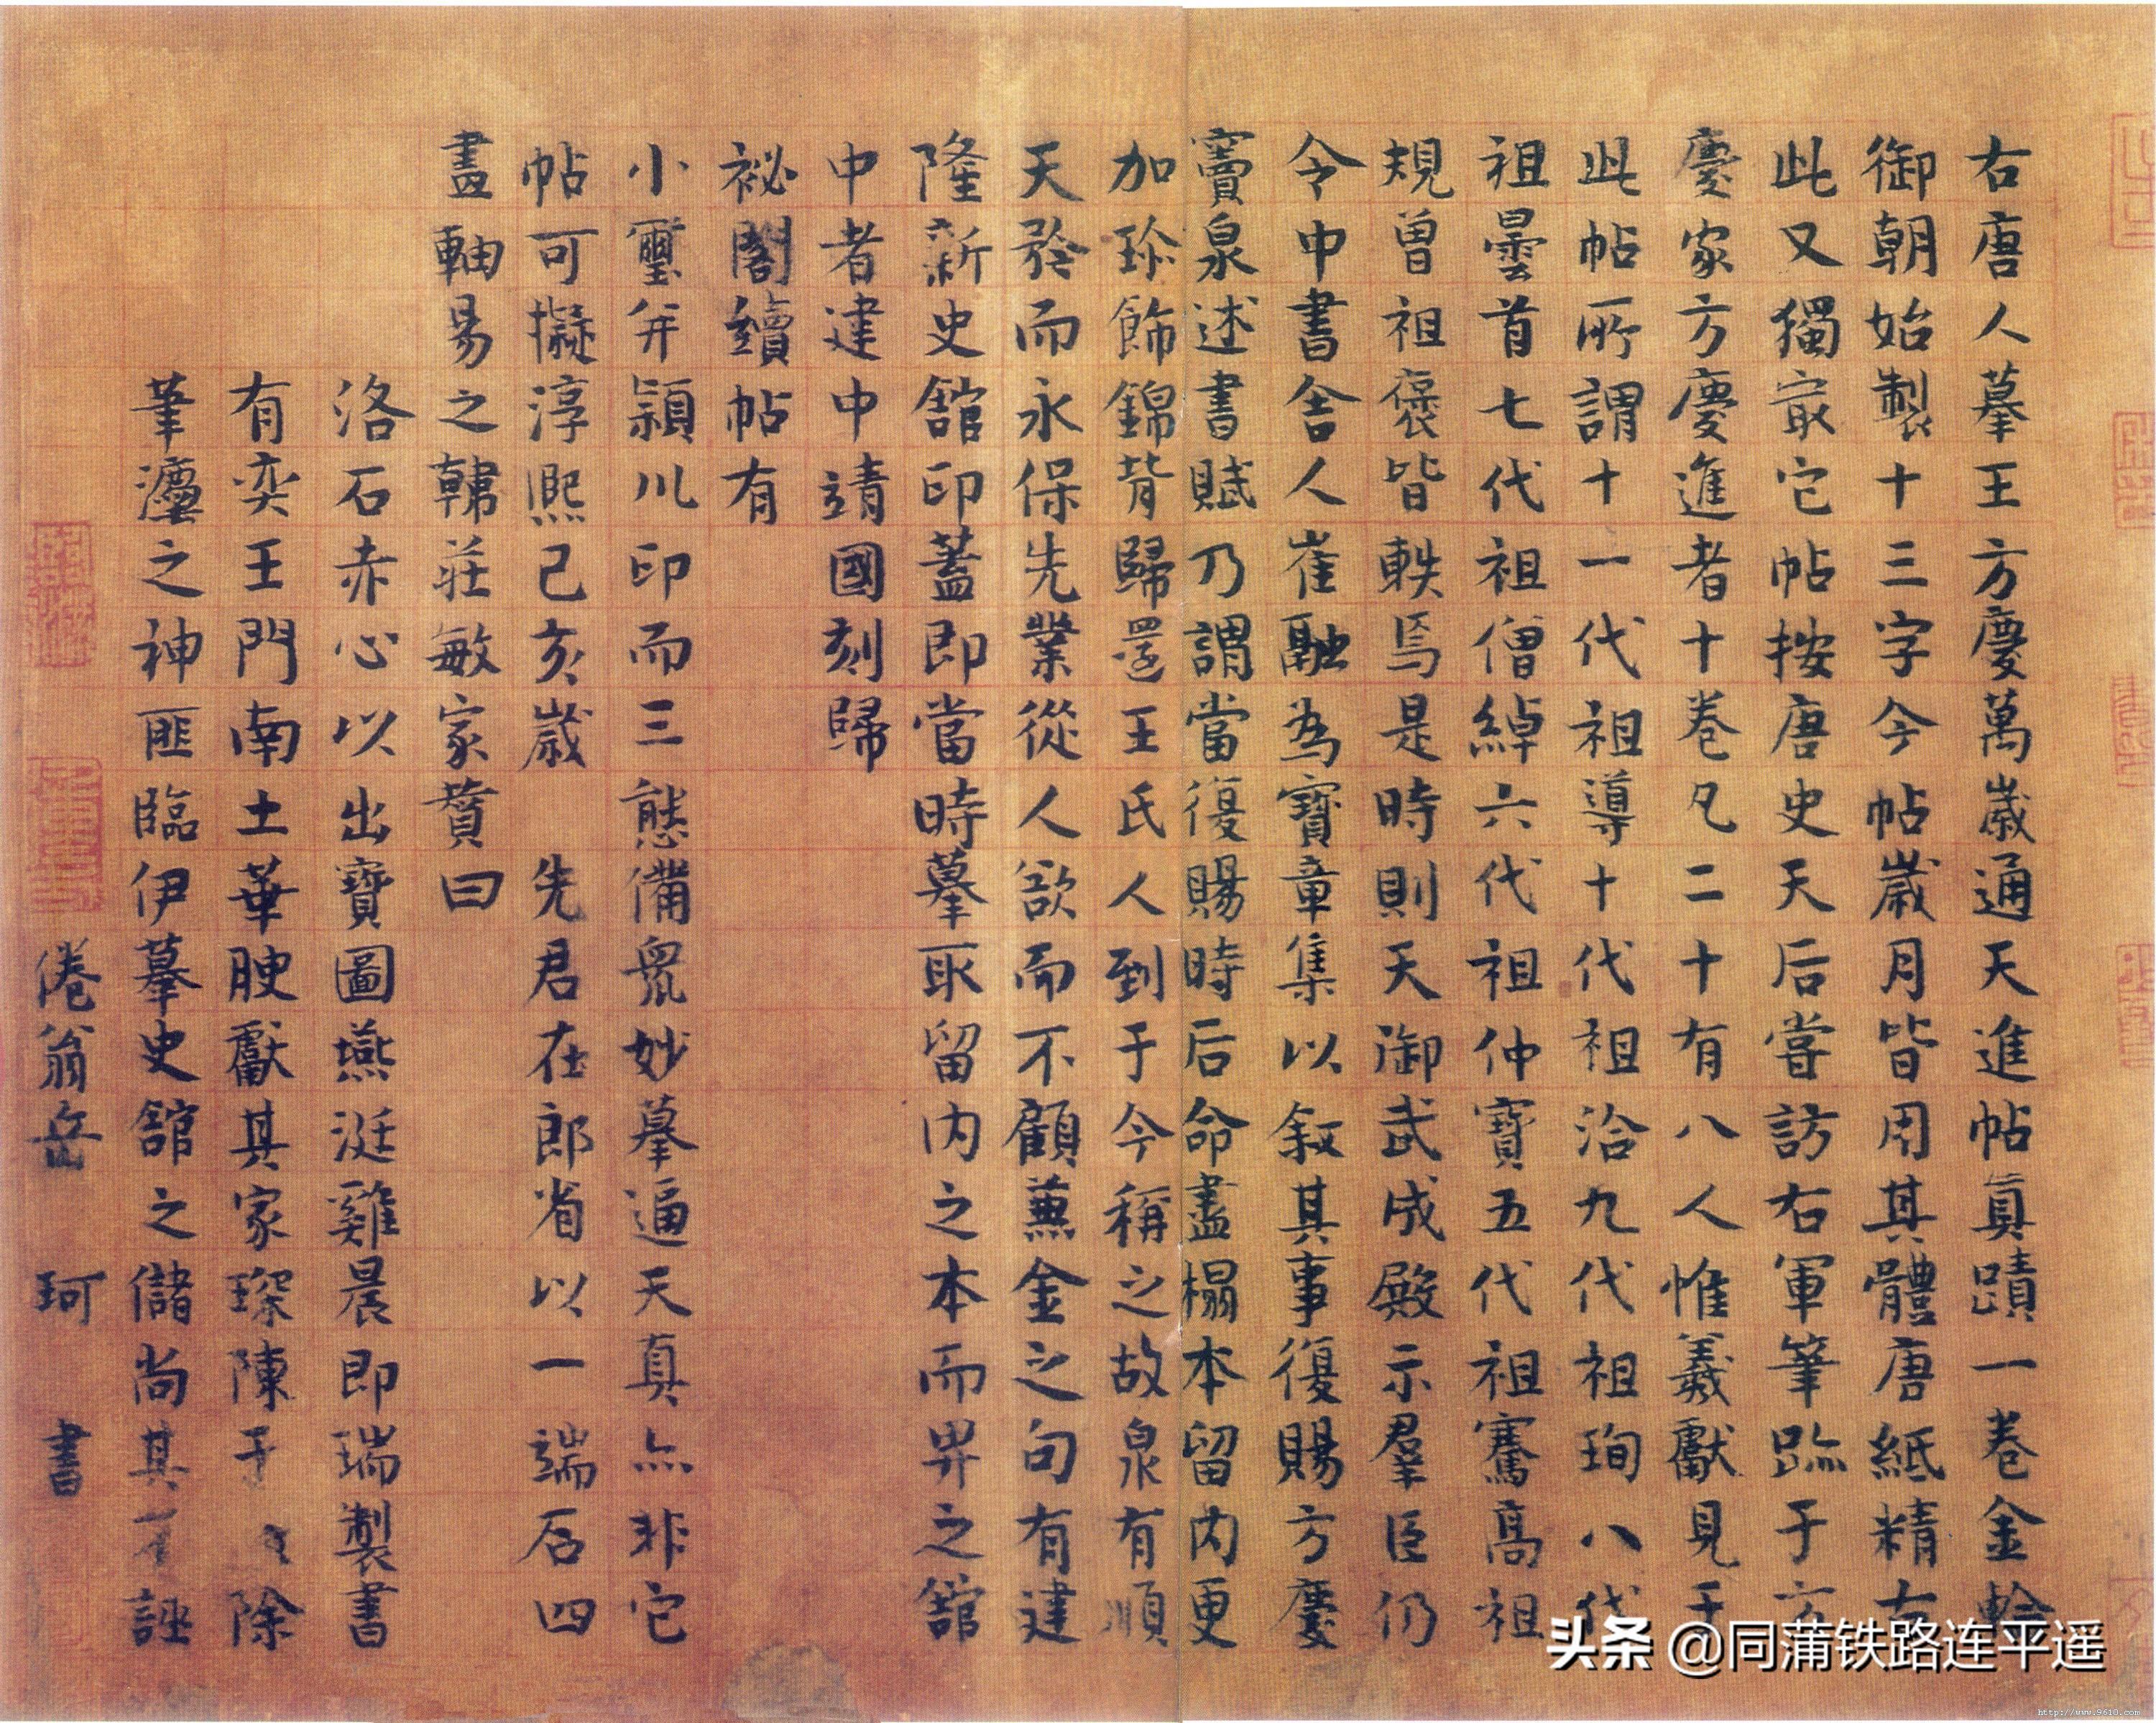 右唐人摹王方慶萬歲通天進帖真蹟一卷金輪
御朝始製十三字今帖歲月皆用其體唐紙精古
此又獨冣它帖按唐史天后嘗訪右軍筆跡于方
慶家方慶進者十卷凡二十有八人惟羲獻見于
此帖所謂十一代祖導十代祖洽九代祖珣八代
祖曇首七代祖僧綽六代祖仲寶五代祖騫高祖
規曾祖褒皆軼焉是時則天御武成殿示羣臣仍
令中書舍人崔融為寶章集以叙其事復賜方慶
竇臮述書賦乃謂當復賜時后命盡榻本留內更
加珍飾錦背歸還王氏人到于今稱之故臮有順
天矜而永保先業從人欲而不顧兼金之句有建
隆新史舘印蓋即當時摹取留內之本而畀之舘
中者建中靖國刻歸
祕閣續帖有
小璽并潁川印而三態備衆妙摹逼天真亦非它
帖可擬淳熙己亥歲 先君在郎省以一端石四
畫軸易之韓莊敏家贊曰
洛石赤心以出寶圖燕涎雞晨即瑞製書
有奕王門南土華腴獻其家琛陳于 除
筆灋之神匪臨伊摹史舘之儲尚其 誣
倦翁岳 珂 書
头条 @同蒲铁路连平遥
http://www.9610.com